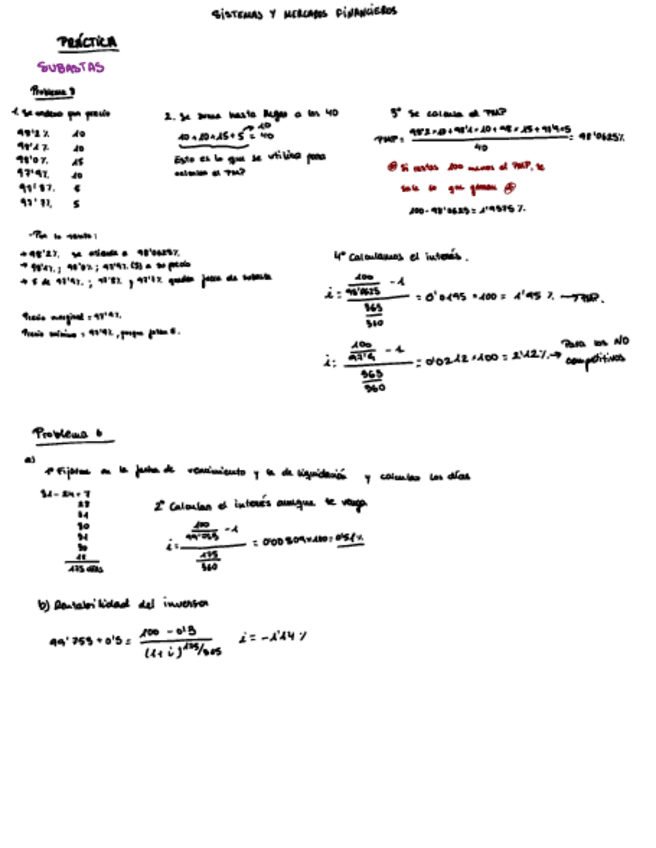 SISTEMAS Y MERCADOS FINANCIEROS
PRÁCTICA
SUBASTAS
Problema
1. Se ordena por precio
98'2% 10
98'1% 10
98'0% 15
97'9% 10
97'8% 5
97'7% 5
2. Se suma hasta llegar a los 40
10+10+15+5 = 40
10
Esto es lo que se utiliza para
calcular el PMP
3º Se calcula el PMP
PMP = 98'2×10+98'1×10+98×15+97'9×5 / 40 = 98'0625%
Si restas 100 menos el PMP, te
sale lo que ganan
100-98'0625 = 1'9375%.
- Por lo tanto:
→ 98'2% se adjudica a 98'0625%
→ 98'1%; 98'0%; 97'9% (5) a su precio
→ 5 de 97'9%; 97'8% y 97'7% quedan fuera de subasta
Precio marginal = 97'9%.
Precio mínimo = 97'9%, porque
4º Calculamos el interés.
i = (100/98'0625 - 1) / (365/360) = 0'0195 × 100 = 1'95% → PMP.
i = (100/97'9 - 1) / (365/360) = 0'0212 × 100 = 2'12% → Para los NO
competitivos
Problema 6
a)
1º Fijarse en la fecha de vencimiento y la de liquidación y calcular los días
31-24 = 7
31
30
31
30
18
175 días
2º Calculan el interés aunque te venga
i = (100/99'755 - 1) / (175/360) = 0'00509×100 = 0'51%
b) Rentabilidad del inversor
99'755 + 0'5 = (100 - 0'5) / (1+i)^175/365 i = -1'14%